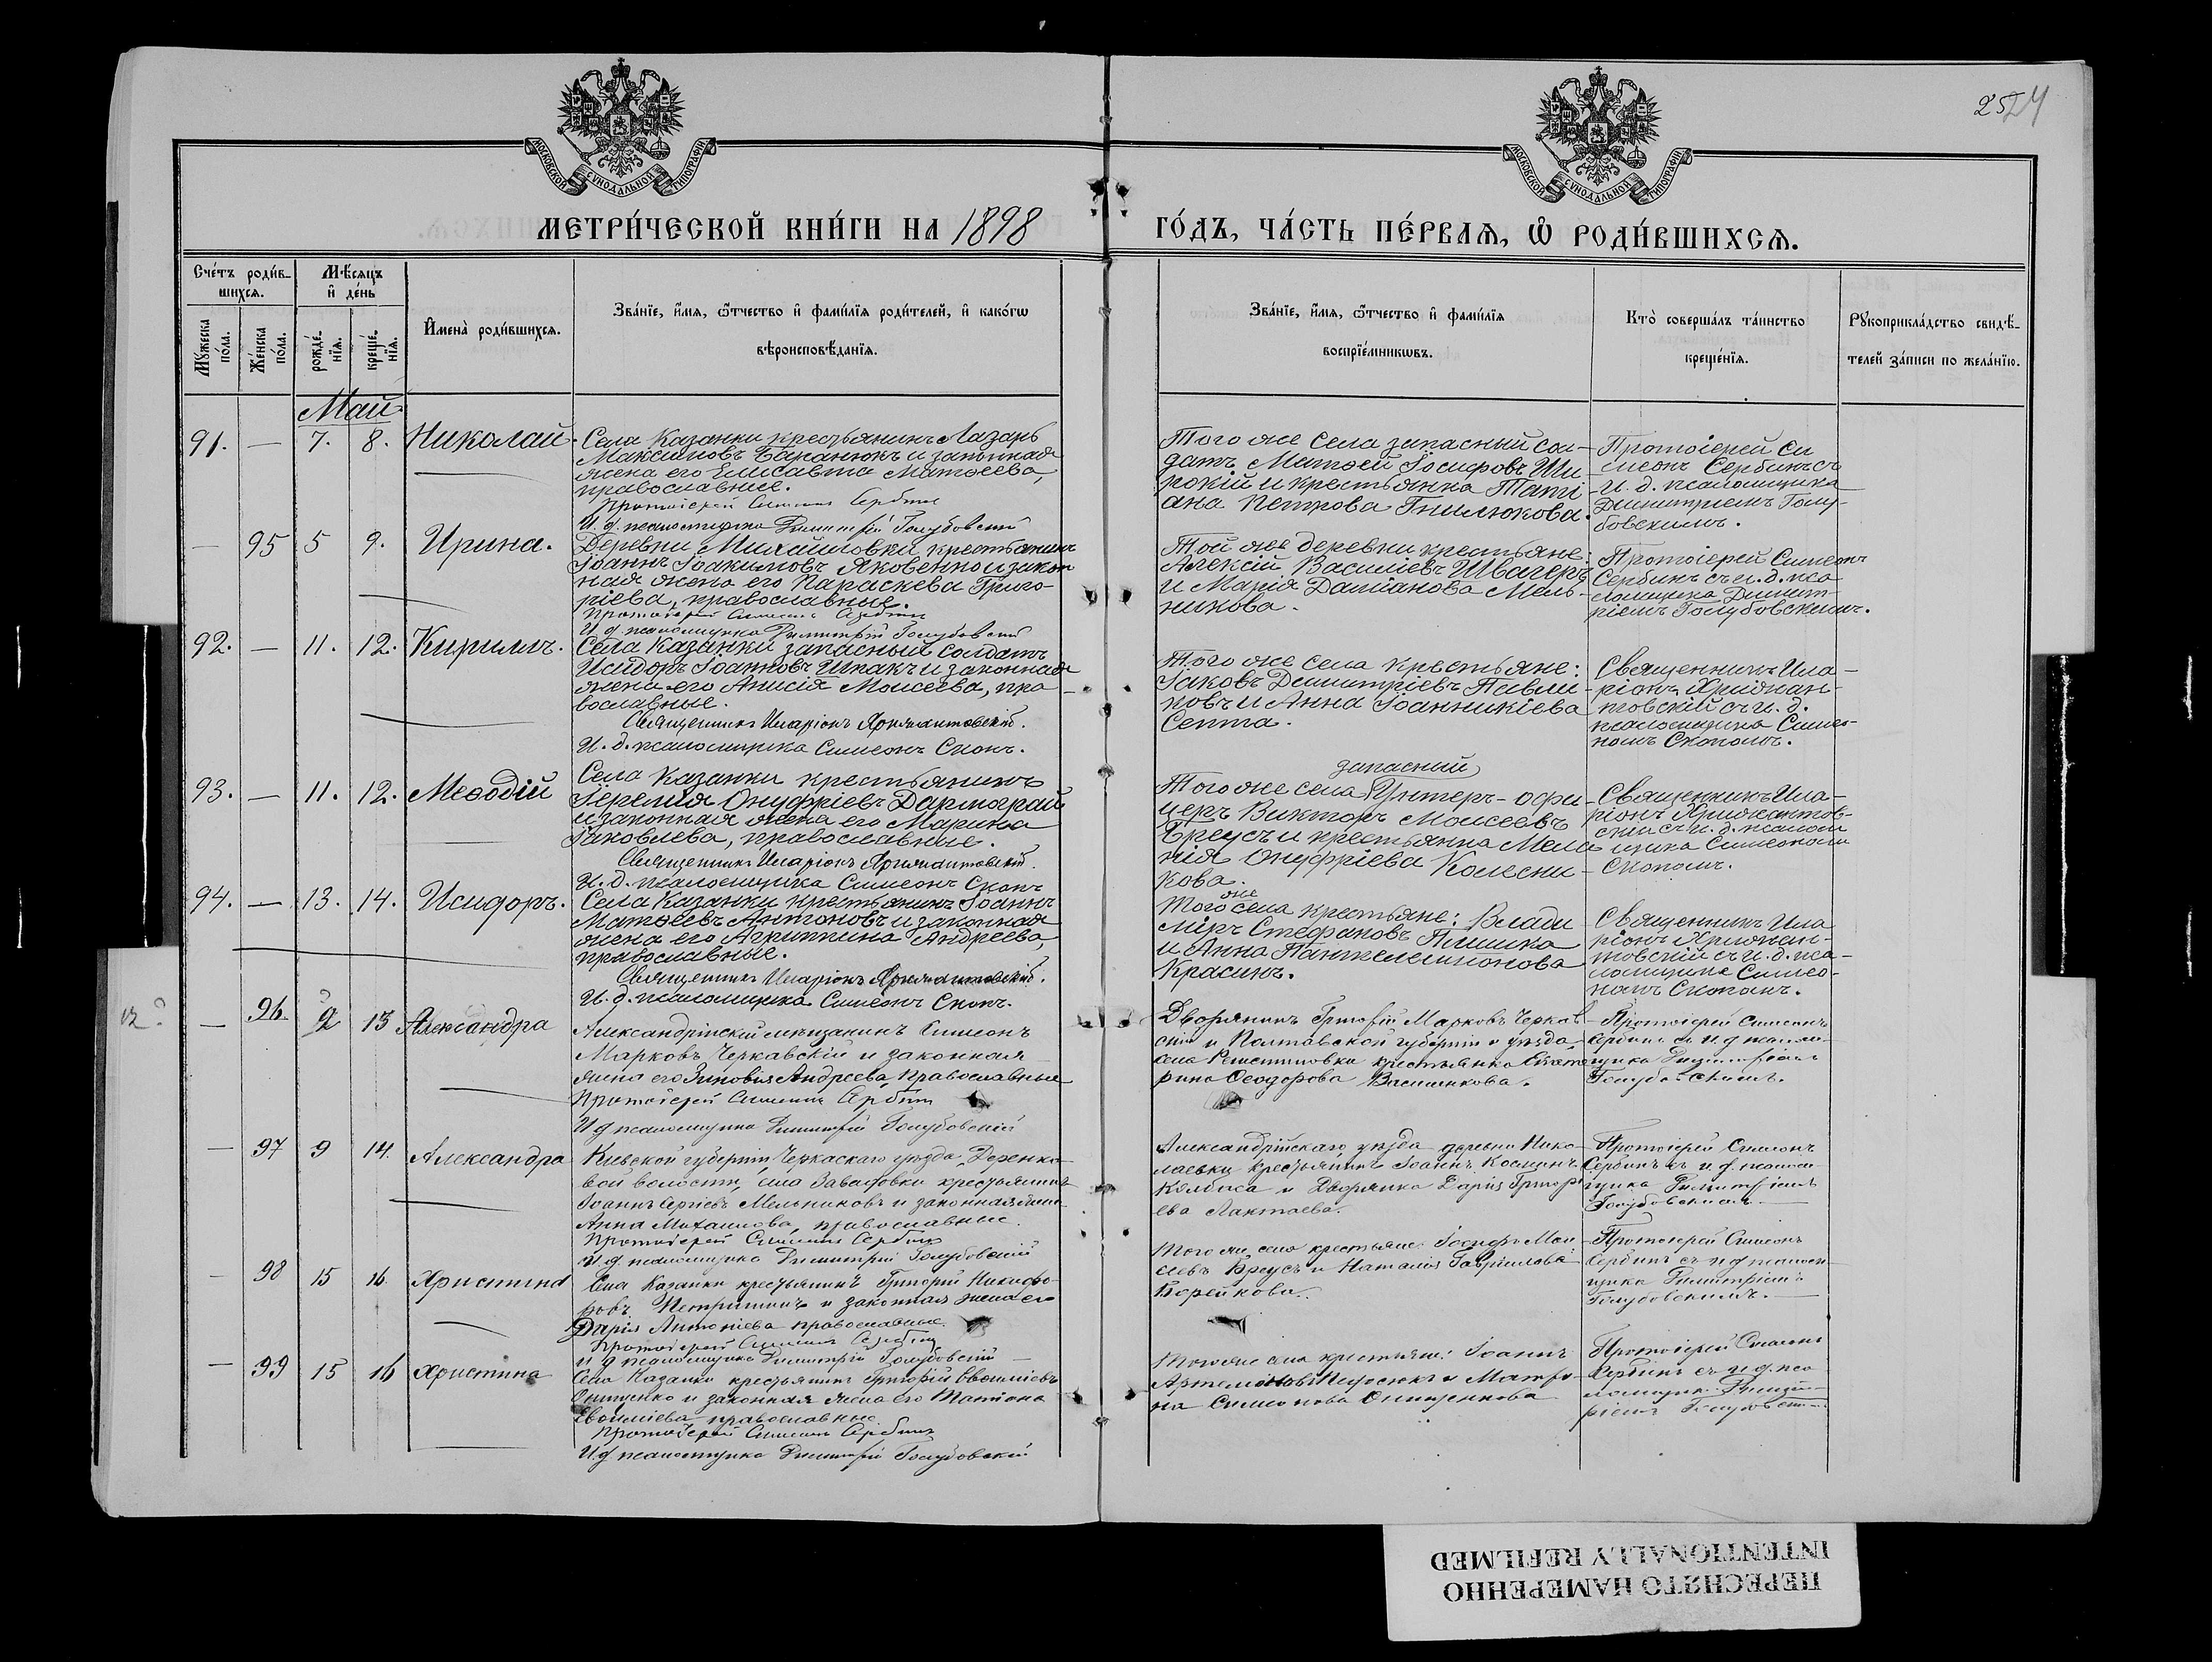 25 24
МОСКОВСКОЙ СѴНОДАЛЬНОЙ ТИПОГРАФІИ
МОСКОВСКОЙ СѴНОДАЛЬНОЙ ТИПОГРАФІИ
МЕТРИ́ЧЕСКОЙ КНИ́ГИ НА 1898
ГО́ДЪ, ЧА́СТЬ ПЕ́РВАѦ, Ѽ РОДИ́ВШИХСѦ.
Сче́тъ роди́в-
шихсѧ.
Мꙋ́жеска по́ла.
Же́нска по́ла.
Мѣ́сяцъ
и҆ де́нь
рожде́-
нїѧ.
креще́-
нїѧ.
И҆мена̀ роди́вшихсѧ.
Зва́нїе, и҆́мѧ, ѻ҆́тчество и҆ фами́лїѧ роди́телей, и҆ како́гѡ
вѣроисповѣ́данїѧ.
Зва́нїе, и҆́мѧ, ѻ҆́тчество и҆ фами́лїѧ
воспрїе́мникѡвъ.
Кто̀ соверша́лъ та́инство
креще́нїѧ.
Рꙋкоприкла́дство свидѣ́-
телей за́писи по жела́нїю.
Май
91. — 7. 8. Николай.
Села Казанки крестьянинъ Лазарь
Максимовъ Баранюкъ и законная
жена его Елисавета Матѳеева,
православные.
Протоіерей Симеонъ Сербинъ
И. д. псаломщика Димитрій Голубовскій
Того же села запасный сол-
датъ Матѳей Іосифовъ Ши-
рокій и крестьянка Тати
ана Петрова Гнилюкова.
Протоіерей Си
меонъ Сербинъ съ
И. д. псаломщика
Димитріемъ Голу-
бовскимъ.
— 95 5 9. Ирина.
Деревни Михайловки крестьянинъ
Іоаннъ Іоакимовъ Яковенко и закон
ная жена его Параскева Григо-
ріева, православные.
Протоіерей Симеонъ Сербинъ
И. д. псаломщика Димитрій Голубовскій
Той же деревни крестьяне:
Алексій Василіевъ Швагеръ
и Марія Даміанова Мель-
никова.
Протоіерей Симеонъ
Сербинъ съ и. д. пса
ломщика Димит-
ріемъ Голубовскимъ.
92. — 11. 12. Кириллъ.
Села Казанки запасный солдатъ
Исидоръ Іоанновъ Шпакъ и законная
жена его Анисія Моисеева, пра-
вославные.
Священникъ Иларіонъ
И. д. псаломщика Симеонъ Скопъ.
Того же села крестьяне:
Іаковъ Димитріевъ Павли-
ковъ и Анна Іоанникіева
Септа.
Священникъ Ила-
ріонъ
съ и. д.
псаломщика Симео-
номъ Скопомъ.
93. — 11. 12. Меѳодій
Села Казанки крестьянинъ
Іеремія Онуфріевъ Дармограй
и законная жена его Марина
Іаковлева, православные.
Священникъ Иларіонъ
И. д. псаломщика Симеонъ Скопъ
запасный
Того же села Унтеръ-офи-
церъ Викторъ Моисеевъ
Бреусъ и крестьянка Мела
нія Онуфріева Колесни-
кова.
Священникъ Ила-
ріонъ
съ И. д. псалом
щика Симеономъ
Скопомъ.
94. — 13. 14. Исидоръ.
Села Казанки крестьянинъ Іоаннъ
Матѳеевъ Антоновъ и законная
жена его Агриппина Андреева,
православные.
Священникъ Иларіонъ
И. д. псаломщика Симеонъ Скопъ.
же
Того села крестьяне: Влади
міръ Стефановъ Плишка
и Анна Пантелеимонова
Красинъ.
Священникъ Ила
ріонъ
съ и. д. пса-
ломщика Симео-
номъ Скопомъ.
12?
— 96 9 13 Александра
Александрійскій мѣщанинъ Симеонъ
Марковъ Черкавскій и законная
жена его Зиновія Андреева, православные
Протоіерей Симеонъ Сербинъ
И д псаломщика Димитрій Голубовскій
Дворянинъ Григорій Марковъ Черкав-
скій и Полтавской губерніи и уѣзда
села Решетиловки крестьянка Екате
рина Ѳеодорова Василенкова.
Протоіерей Симеонъ
Сербинъ съ и д псалом-
щика Димитріемъ
Голубовскимъ.
— 97 9 14. Александра
Кіевской губерніи Черкаскаго уѣзда, Деренко-
вой волости, села крестьянинъ
Іоаннъ Сергіевъ Мельниковъ и законная жена
Анна Михаилова, православные.
Протоіерей Симеонъ Сербинъ
И д. псаломщика Димитрій Голубовскій
Александрійскаго уѣзда деревни Нико-
лаевки крестьянинъ Іоаннъ Космичъ
Колбаса и Дворянка Дарія Григорі
ева Лактаева.
Протоіерей Симеонъ
Сербинъ съ и д. псалом-
щика Димитріемъ
Голубовскимъ.
— 98 15 16. Христина
Села Казанки крестьянинъ Григорій Никифо-
ровъ и законная жена его
Дарія Антоніева православные.
Протоіерей Симеонъ Сербинъ
и д псаломщика Димитрій Голубовскій
Того же села крестьяне Іосифъ Мои
сеевъ Бреусъ и Наталія Гавріилова
Борейкова.
Протоіерей Симеонъ
Сербинъ съ и д псалом-
щика Димитріемъ
Голубовскимъ.
— 99 15 16 Христина
Села Казанки крестьянинъ Григорій Евѳиміевъ
Онищенко и законная жена его Татіана
Евѳиміева православные.
Протоіерей Симеонъ Сербинъ
И д псаломщика Димитрій Голубовскій
Того же села крестьяне: Іоаннъ
Артемоновъ и Матро-
на Симеонова Онищенкова
Протоіерей Симеонъ
Сербинъ съ и д. пса
ломщик. Димит-
ріемъ
ПЕРЕСНЯТО НАМЕРЕННО
INTENTIONALLY REFILMED